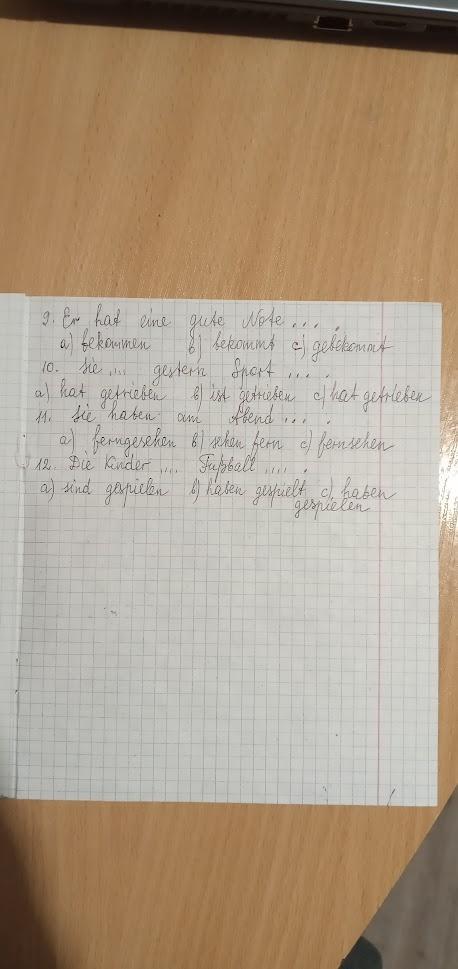 9. Er hat eine gute Note ... .
a) bekommen b) bekommt c) gebekommt
10. Sie .... gestern Sport ... .
a) hat getrieben b) ist getrieben c) hat getrieben
11. Sie haben am Abend ... .
a) ferngesehen b) sehen fern c) fernsehen
12. Die Kinder .... Fußball .... .
a) sind gespielen b) haben gespielt c) haben
gespielen